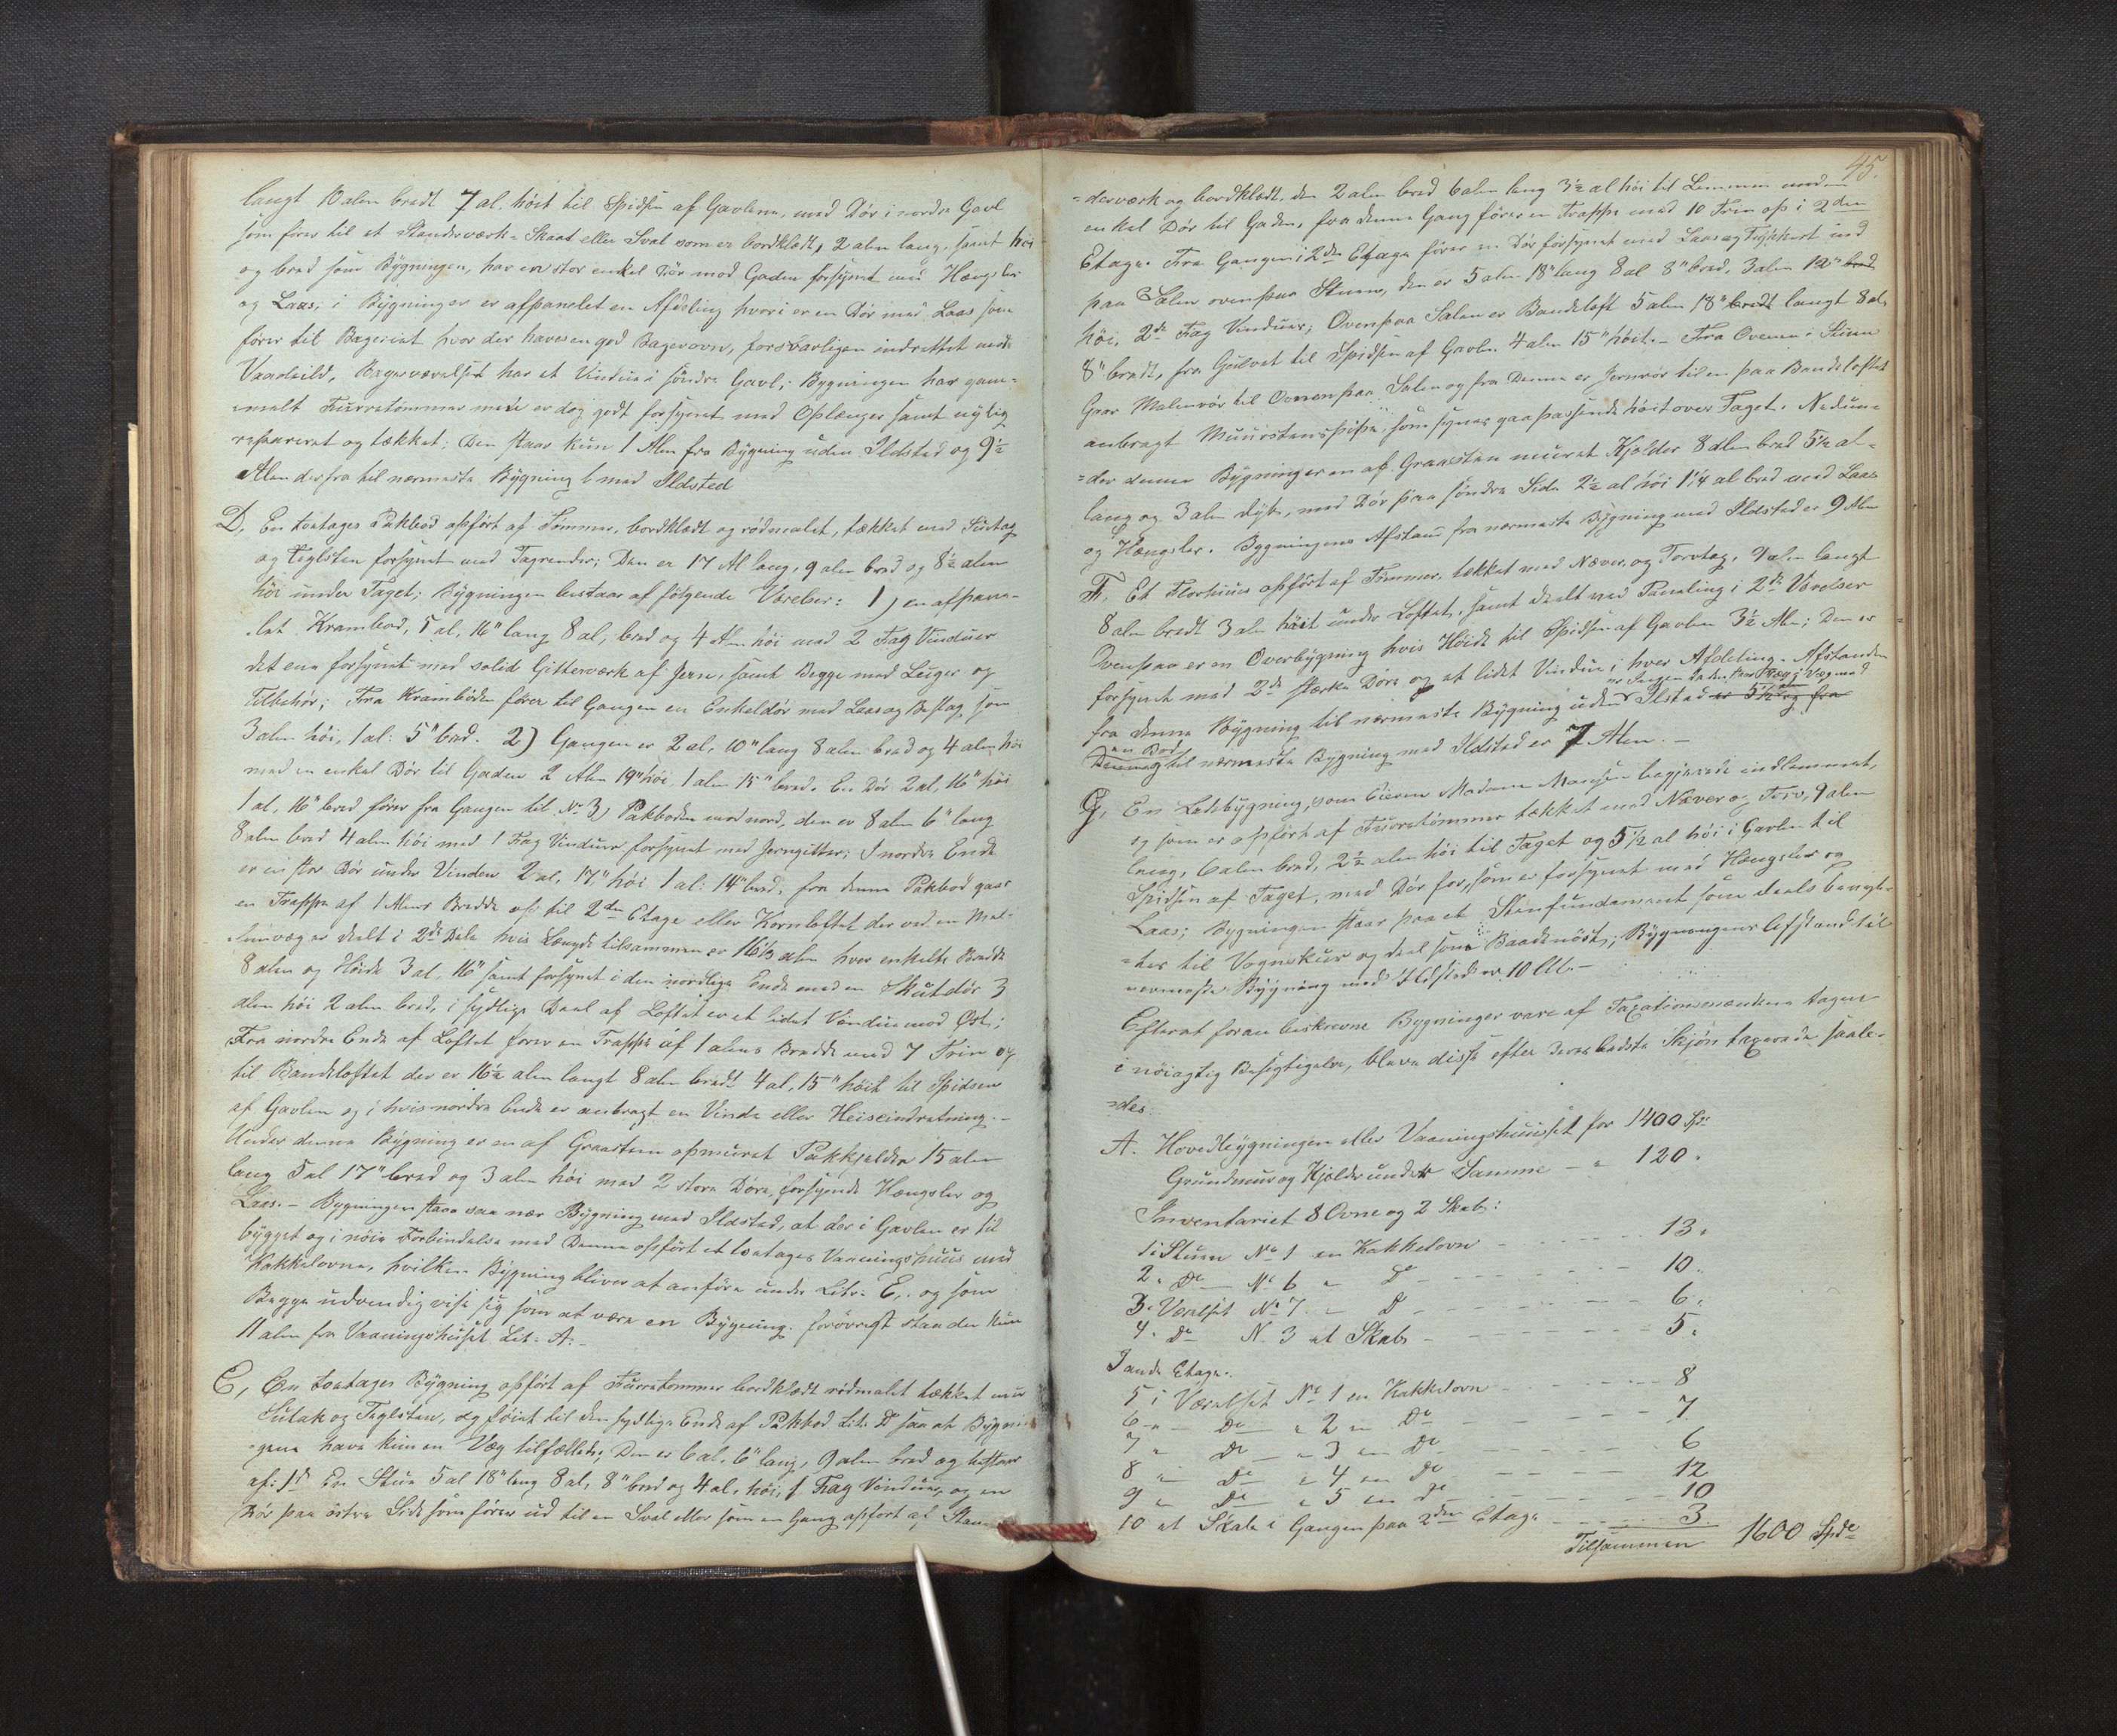 langt 10 alen bredt 7 al. höit til Spidsen af Gavlerne, med Dör i nordre Gavl
som förer til et Standerværk-Skaat eller Sval som er bordklædt, 2 alen lang, samt höi
og bred som Bÿgningen, har en stor enkel Dör mod Gaden forsÿnet med Hængsler
og Laas; i Bÿgningen er afpanelet en Afdeling hvori er en Dör med Laas som
förer til Bageriet hvor der haves en god Bagerovn, forsvarligen indrettet mod
Vaadeild, Bagerværelset har et Vindue i söndre Gavl; Bygningen har gam-
=malt Furretömmer men er dog godt forsÿnet med Oplænger samt nÿlig
repareret og tækket; Den staar kun 1 Alen fra Bÿgning uden Ildsted og 9½
Alen derfra til nærmeste Bÿgning b med Ildsted
D, En toetages Pakbod opfört af Tömmer, bordklædt og rödmalet, tækket med Sutag
og Teglsten forsÿnet med Tagrender; Den er 17 Al lang, 9 alen bred og 8½ alen
höi under Taget; Bÿgningen bestaar af fölgende Værelser: 1) en afpane-
let Krambod, 5 al, 16" lang 8 al, bred og 4 Alen höi med 2 Fag Vinduer
det ene forsÿnet med solid Gitterværk af Jern, samt Begge med Luger og
Tilbehör; Fra Kramboden förer til Gangen en Enkeldör med Laas og Beslag som
3 alen höi, 1 al: 5" bred. 2) Gangen er 2 al, 10" lang 8 alen bred og 4 alen höi
med en enkel Dör til Gaden 2 Alen 19" höi 1 alen 15" bred. En Dör 2 al, 16" höi
1 al, 16" bred förer fra Gangen til No 3) Pakboden mod nord, den er 8 alen 6" lang
8 alen bred 4 alen höi med 1 Fag Vinduer forsÿnet med Jerngitter; I nordre Ende
er en stor Dör under Vinden 2 al, 17" höi 1 al: 14" bred, fra denne Pakbod gaar
en Trappe af 1 Alens Bredde op til 2den Etage eller Kornloftet der ved en Mel-
lemvæg er deelt i 2de Dele hvis Længde tilsammen er 16½ alen hver enkelte Bredde
8 alen og Höide 3 al, 16" samt forsÿnet i den nordlige Ende med en Skutdör 3
alen höi 2 alen bred, i sydlige Deel af Loftet er et lidet Vindue mod Øst;
Fra nordre Ende af Loftet förer en Trappe af 1 alens Bredde med 7 Trin op
til Bandeloftet der er 16½ alen langt 8 alen bredt 4 al, 15" höit til Spidsen
af Gavlen og i hvis nordre Ende er anbragt en Vinde eller Heiseindretning. -
Under denne Bÿgning er en af Graasteen opmuret Pakkjelder 15 alen
lang 5 al 17" bred og 3 alen höi med 2 store Döre, forsÿnede Hængsler og
Laas. - Bygningen staar saa nær Bÿgning med Ildsted, at der i Gavlen er til
bÿgget og i nöie Forbindelse med Denne opfört et toetages Vaaningshuus med
Kakkelovne, hvilken Bÿgning bliver at anföre under Litr. E, og som
Begge udvendig vise sig som at være en Bÿgning. forövrigt staar der kun
11 alen fra Vaaningshuset Lit: A. -
E, En toetages Bÿgning opfört af Furretömmer bordklædt rödmalet tækket med
Sutak og Teglsten, og föiet til den sÿdlige Ende af Pakbod Litr D saa at Bÿgnin
gerne have kun en Væg tilfælleds; Den er 6 al. 6" lang, 9 alen bred og bestaar
af: 1o En Stue 5 al 18" lang 8 al, 8" bred og 4 al. höi, 1 Fag Vinduer, og en
Dör paa östre Side som förer ud til en Sval eller som en Gang opfört af Stan
45.
=derværk og bordklædt, den 2 alen bred 6 alen lang 3½ al höi til Lemmen med en
enkel Dör til Gaden, fra denne Gang förer en Trappe med 10 Trin op i 2den
Etage. Fra Gangen i 2den Etage förer en Dör forsÿnet med Laas og ind
paa Salen ovenpaa Stuen, den er 5 alen 18" lang 8 al 8" bred, 3 alen 12" bred
höi, 2de Fag Vinduer; Ovenpaa Salen er Bandeloft 5 alen 18" bredt langt 8 al,
8" bredt, fra Gulvet til Spidsen af Gavlen 4 alen 15" höit. - Fra Ovnen i Stuen
gaar Malmrör til Ovnen paa Salen og fra Denne er Jernrör til en paa Bandeloftet
anbragt Muurstenspibe, som sÿnes gaa passende höit over Taget. Nedun-
=der denne Bÿgning er en af Graasten muret Kjelder 8 alen bred 5½ al=
lang og 3 alen dÿb, med Dör paa söndre Side 2½ al höi 1¼ al bred med Laas
og Hængsler. Bygningens Afstand fra nærmeste Bÿgning med Ildsted er 9 Alen
F, Et Florhuus opfört af Tömmer, tækket med Næver og Torvtag, 9 alen langt
8 alen bredt 3 alen höit under Loftet, samt deelt ved Paneling i 2de Værelser
Ovenpaa er en Overbÿgning hvis Höide til Spidsen af Gavlen 3½ Alen; Den er
forsÿnet med 2de stærke Döre og et lidet Vindue i hver Afdeling. Afstanden
er Ingen da den har Væg i Væg med
fra denne Bÿgning til nærmeste Bÿgning uden Ilsted er 5½ al og fra
en Bod
Denne og til nærmeste Bÿgning med Ildsted er 7 Alen. -
G, En Ladebÿgning, som Eieren Madame begjærede indlemmet,
og som er opfört af Furretömmer tækket med Næver og Torv, 9 alen
lang, 6 alen bred, 2½ alen höi til Taget og 5½ al höi i Gavlen til
Spidsen af Taget, med Dör for, som er forsÿnet med Hængsler og
Laas; Bygningen staar paa et Stenfundament som deels benÿt-
=tes til Vognskur og deel som Baadenöst; Bÿgningens Afstand til
nærmeste Bÿgning med Ildsted er 10 Al. -
Efterat foran beskrevne Bygninger vare af Taxationsmændene tagne
i nöiagtig Besigtigelse, bleve disse efter deres bedste Skjön taxerede saale-
=des:
A. Hovedbÿgningen eller Vaaningshuuset for 1400 Spd:
Grundmur og Kjelder under Samme - " 120 "
Inventariet 8 Ovne og 2 Skabe:
1 i Stuen No 1 en Kakkelovn - - - - - - 13 "
2 " Do No 6 " Do - - - - - - 10 "
3. Værelset No 7. - D - - - - - - 6 "
4. Do N. 3 et Skab - - - - - - 5 "
I anden Etage.
5 i Værelset No 1 en Kakkelovn - - - - - 8
6 " - Do " 2 en Do - - - - - 7
7 " Do " 3 en Do - - - - - 6
8 " Do " 4 en Do - - - - - 12
9 " Do " 5 en Do - - - - - 10
10 et Skab i Gangen paa 2den Etage - - - - - 3.
Tilsammen 1600 Spd